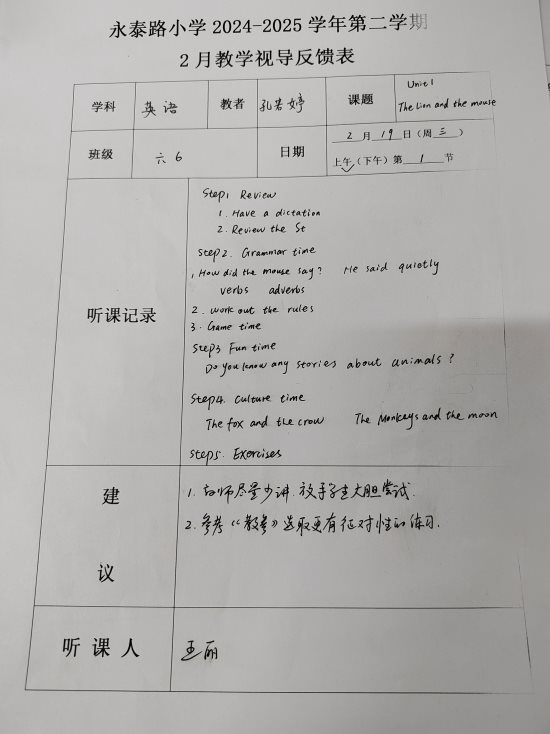 永泰路小学 2024-2025 学年第二学期
2 月教学视导反馈表
学科 英语 教者 孔若婷 课题 Unit 1
The Lion and the mouse
班级 六6 日期 2 月 19 日（周 三 ）
上午（下午）第 1 节
听课记录
Step1 Review
1. Have a dictation
2. Review the St
Step2. Grammar time
1. How did the mouse say? He said quietly
verbs adverbs
2. work out the rules
3. Game time
Step3 Fun time
Do you know any stories about animals?
Step4. Culture time
The fox and the crow The Monkeys and the moon
Step5. Exercises
建议
1. 教师尽量少讲, 放手学生大胆尝试.
2. 参考《教参》选取更有征对性的练习.
听 课 人 王丽